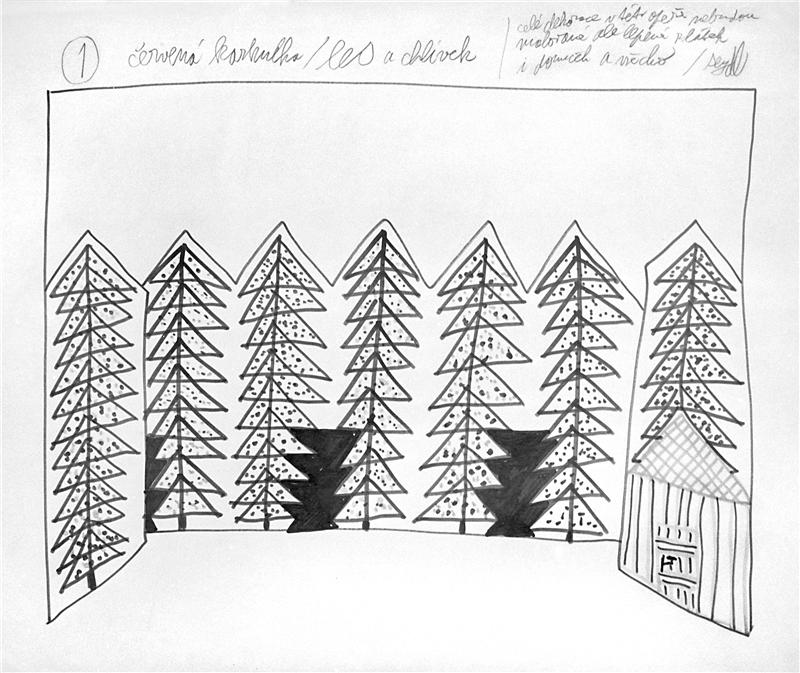 1 červená karkulka / les a chlívek
celé dekorace v této opeře nebudou
malovaná ale lepená z látek
i domeček a všecko /